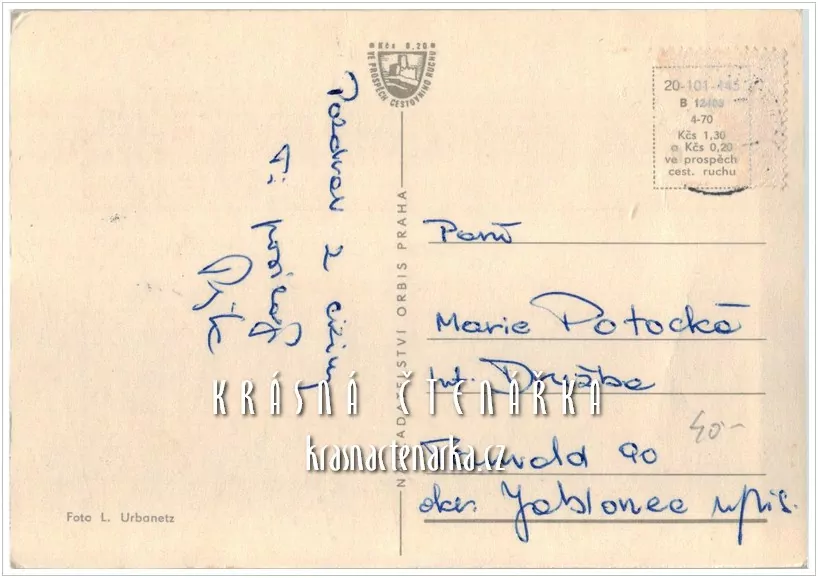 Kčs 0,20
VE PROSPĚCH CESTOVNÍHO RUCHU
20-101-445
B 12403
4-70
Kčs 1,30
a Kčs 0,20
ve prospěch
cest. ruchu
Pozdrav z ciziny
Ti posílá
NAKLADATELSTVÍ ORBIS PRAHA
Paní
Marie Potocká
int. Družba
Tanvald 90
okr. Jablonec n/Nis.
40-
KRÁSNÁ ČTENÁŘKA
krasnactenarka.cz
Foto L. Urbanetz